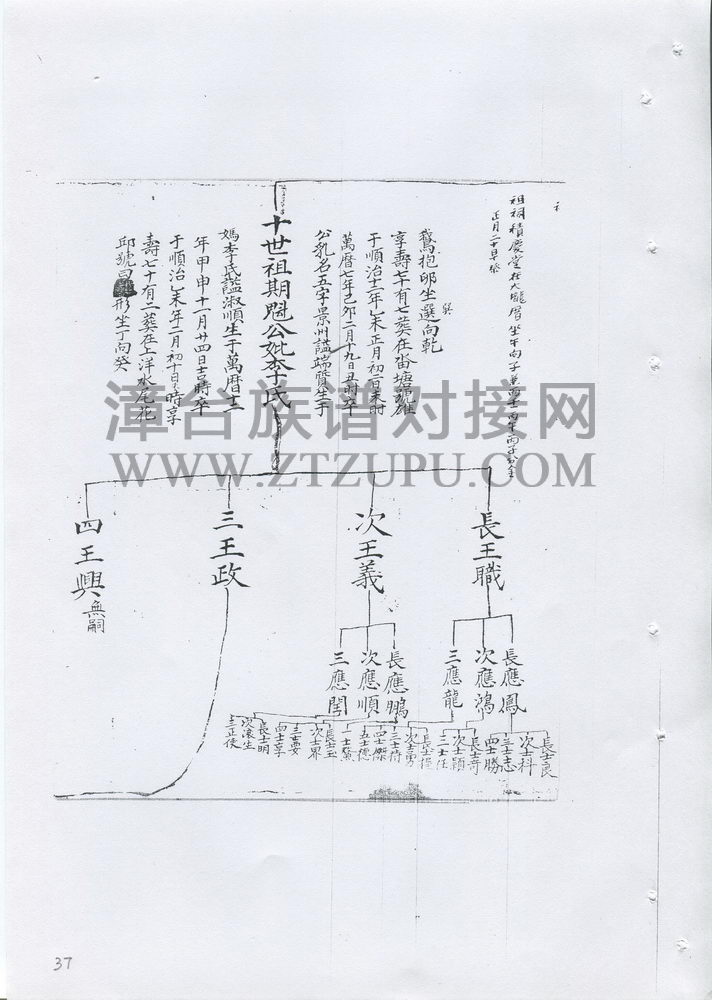 祖祠積慶堂在大龍層坐午向子兼丙壬丙午丙子分金
十世祖期魁公妣李氏
公乳名五字景州謚端質生于
萬曆七年己卯二月十九日丑時卒
于順治十二年乙未正月初二日未時
享壽七十有七葬在畓塘號雄
鵝抱卵坐巽向乾
媽李氏謚淑順生于萬曆十二
年甲申十一月廿四日吉時卒
于順治乙未年二月初十日時享
壽七十有二葬在上洋水尾花
邱號形坐丁向癸
長王職
次王義
三王政
四王興無嗣
長應鳳
次應鴻
三應龍
長應鵬
次應順
三應閏
長士良
次士科
三士志
四士勝
長士奇
次士顯
三士任
長士程
次士勇
三士待
四士傑
五士德
長士玉
次士界
三士要
四士享
長士明
漳台族谱对接网
WWW.ZTZUPU.COM
37